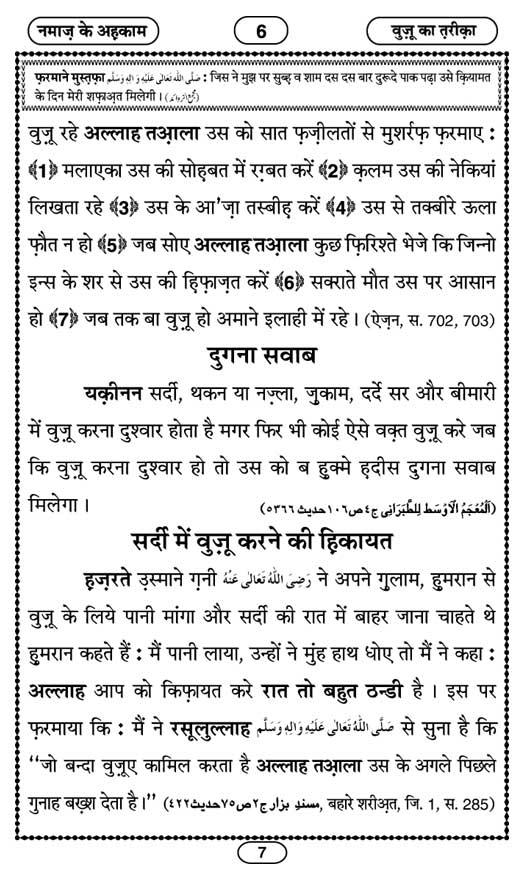 नमाज़ के अह़काम
6
वुज़ू का त़रीक़ा
फ़रमाने मुस्त़फ़ा صَلَّى اللهُ تَعَالٰى عَلَيْهِ وَاٰلِهٖ وَسَلَّم : जिस ने मुझ पर सुब्ह़ व शाम दस दस बार दुरूदे पाक पढ़ा उसे क़ियामत
के दिन मेरी शफ़ाअ़त मिलेगी । (مجمع الزوائد)
वुज़ू रहे अल्लाह तआ़ला उस को सात फ़ज़ीलतों से मुशर्रफ़ फ़रमाए :
﴾1﴿ मलाएका उस की सोह़बत में रग़्बत करें ﴾2﴿ क़लम उस की नेकियां
लिखता रहे ﴾3﴿ उस के आ'ज़ा तस्बीह़ करें ﴾4﴿ उस से तक्बीरे ऊला
फ़ौत न हो ﴾5﴿ जब सोए अल्लाह तआ़ला कुछ फ़िरिश्ते भेजे कि जिन्नो
इन्स के शर से उस की ह़िफ़ाज़त करें ﴾6﴿ सक्राते मौत उस पर आसान
हो ﴾7﴿ जब तक बा वुज़ू हो अमाने इलाही में रहे । (ऐज़न, स. 702, 703)
दुगना सवाब
यक़ीनन सर्दी, थकन या नज़्ला, ज़ुकाम, दर्दे सर और बीमारी
में वुज़ू करना दुश्वार होता है मगर फिर भी कोई ऐसे वक़्त वुज़ू करे जब
कि वुज़ू करना दुश्वार हो तो उस को ब ह़ुक्मे ह़दीस दुगना सवाब
मिलेगा । (اَلْمُعْجَمُ الْاَوْسَط لِلطَّبَرَانِى ج٤ ص١٠٦ حديث ٥٣٦٦)
सर्दी में वुज़ू करने की ह़िकायत
ह़ज़रते उ़स्माने ग़नी رَضِىَ اللهُ تَعَالٰى عَنْهُ ने अपने ग़ुलाम, ह़ुमरान से
वुज़ू के लिये पानी मांगा और सर्दी की रात में बाहर जाना चाहते थे
ह़ुमरान कहते हैं : मैं पानी लाया, उन्हों ने मुंह हाथ धोए तो मैं ने कहा :
अल्लाह आप को किफ़ायत करे रात तो बहुत ठन्डी है । इस पर
फ़रमाया कि : मैं ने रसूलुल्लाह صَلَّى اللهُ تَعَالٰى عَلَيْهِ وَاٰلِهٖ وَسَلَّم से सुना है कि
‘‘जो बन्दा वुज़ूए कामिल करता है अल्लाह तआ़ला उस के अगले पिछले
गुनाह बख़्श देता है ।’’ (مسندِ بزار ج٢ ص٧٥ حديث ٤٢٢, बहारे शरीअ़त, जि. 1, स. 285)
7